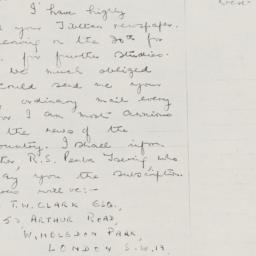 I have highly
your Tibetan newspaper.
leaving on the 30th for
for further studies.
be much obliged
could send me your
ordinary mail every
I am most anxious
the news of the
country. I shall inform
R.S. Pemba Tsering who
pay you the subscription.
will be:-
T.W. CLARK ESQ.,
53 ARTHUR ROAD,
WIMBLEDON PARK,
LONDON S.W.19.